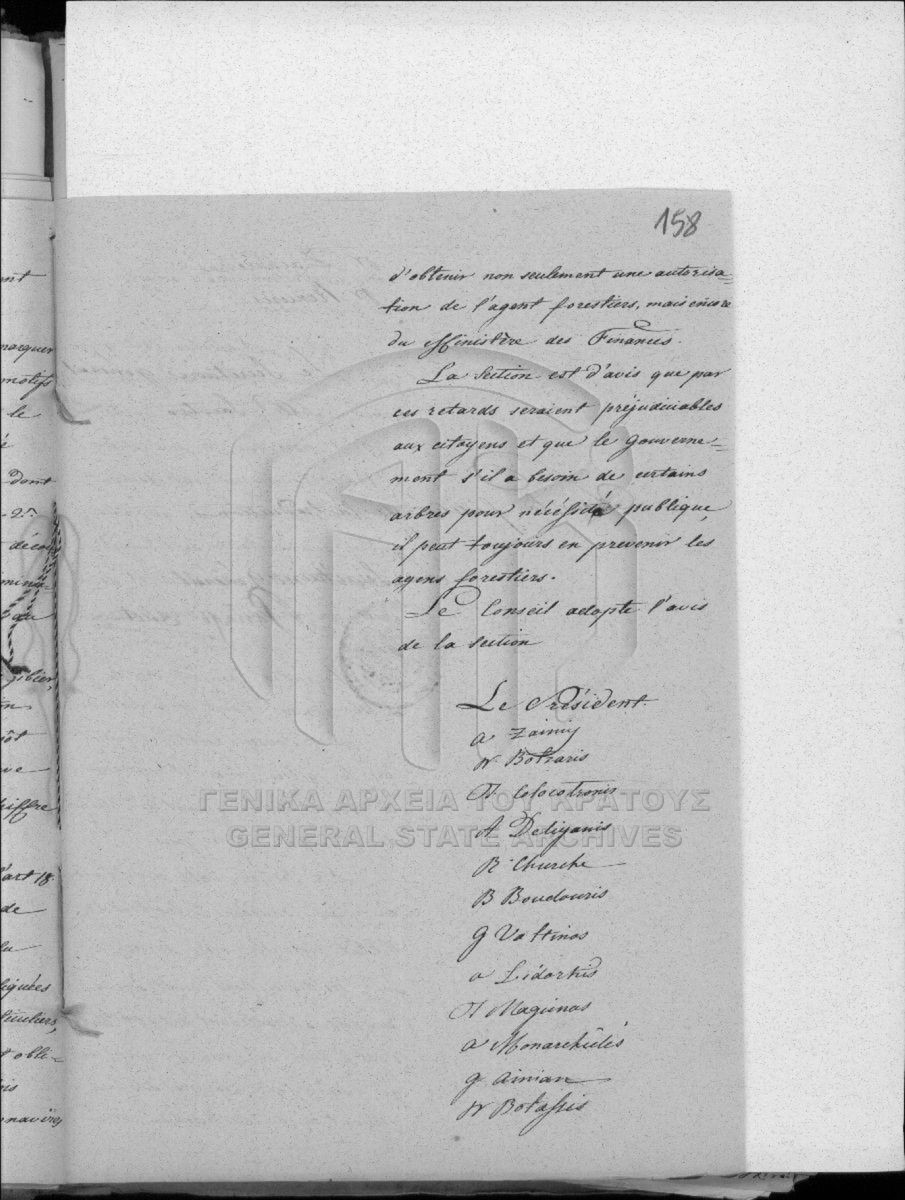 158
d'obtenir non seulement une autorisa=
tion de l'agent forestiers, mais encore
du Ministère des Finances.
La Section est d'avis que par
ces retards seraient préjudiciables
aux citoyens et que le gouverne=
ment s'il a besoin de certains
arbres pour nécéssité publique,
il peut toujours en prevenir les
agens forestiers.
Le Conseil adopte l'avis
de la Section
Le Président
a Zaimy
N Botzaris
Colocotronis
A Deliyanis
R. Churche
B Boudouris
G Valtinos
a Lidorikis
Maginas
a Monarchidés
g Ainian
N Botassis
ΓΕΝΙΚΑ ΑΡΧΕΙΑ ΤΟΥ ΚΡΑΤΟΥΣ
GENERAL STATE ARCHIVES
ent
marquer
motifs
le
é
dont
décou
gibier,
ve
chiffre
l'art 18
de
la
t obli-
navires